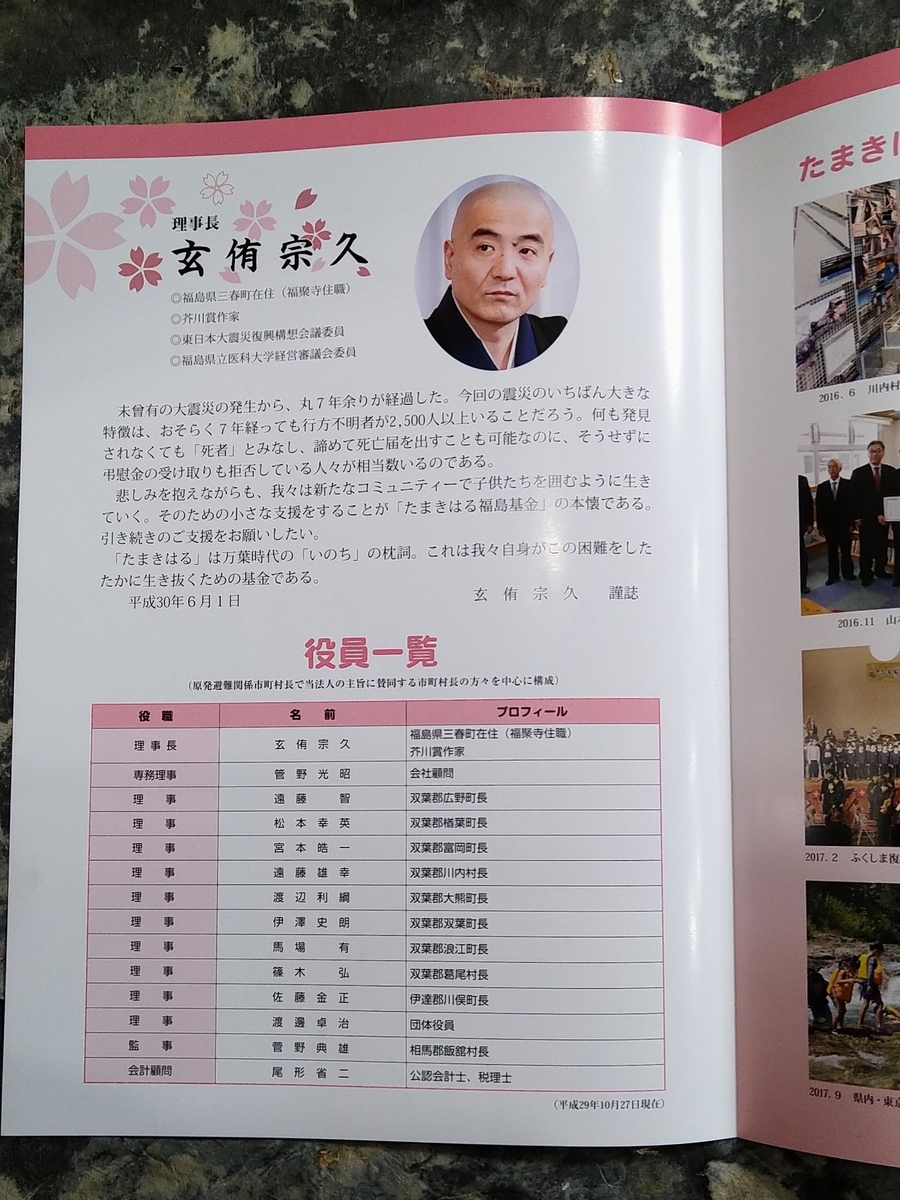 理事長
玄侑宗久
◎福島県三春町在住（福聚寺住職）
◎芥川賞作家
◎東日本大震災復興構想会議委員
◎福島県立医科大学経営審議会委員
未曽有の大震災の発生から、丸７年余りが経過した。今回の震災のいちばん大きな
特徴は、おそらく７年経っても行方不明者が2,500人以上いることだろう。何も発見
されなくても「死者」とみなし、諦めて死亡届を出すことも可能なのに、そうせずに
弔慰金の受け取りも拒否している人々が相当数いるのである。
悲しみを抱えながらも、我々は新たなコミュニティーで子供たちを囲むように生き
ていく。そのための小さな支援をすることが「たまきはる福島基金」の本懐である。
引き続きのご支援をお願いしたい。
「たまきはる」は万葉時代の「いのち」の枕詞。これは我々自身がこの困難をした
たかに生き抜くための基金である。
平成30年６月１日　玄侑宗久　謹誌
役員一覧
（原発避難関係市町村長で当法人の主旨に賛同する市町村長の方々を中心に構成）
役職　名前　プロフィール
理事長　玄侑宗久　福島県三春町在住（福聚寺住職）
芥川賞作家
専務理事　管野光昭　会社顧問
理事　遠藤智　双葉郡広野町長
理事　松本幸英　双葉郡楢葉町長
理事　宮本皓一　双葉郡富岡町長
理事　遠藤雄幸　双葉郡川内村長
理事　渡辺利綱　双葉郡大熊町長
理事　伊澤史朗　双葉郡双葉町長
理事　馬場有　双葉郡浪江町長
理事　篠木弘　双葉郡葛尾村長
理事　佐藤金正　伊達郡川俣町長
理事　渡邊卓治　団体役員
監事　菅野典雄　相馬郡飯舘村長
会計顧問　尾形省二　公認会計士、税理士
（平成29年10月27日現在）
たまき
2016. 6　川内村
2016.11　山
2017. 2　ふくしま復
2017. 9　県内・東京